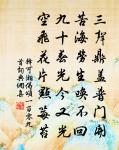 三聲鼎蓋普門開
苦海勞生喚不回
九十春光今又老
空飛花片點莓苔
釋可湘偈頌一百零九
首